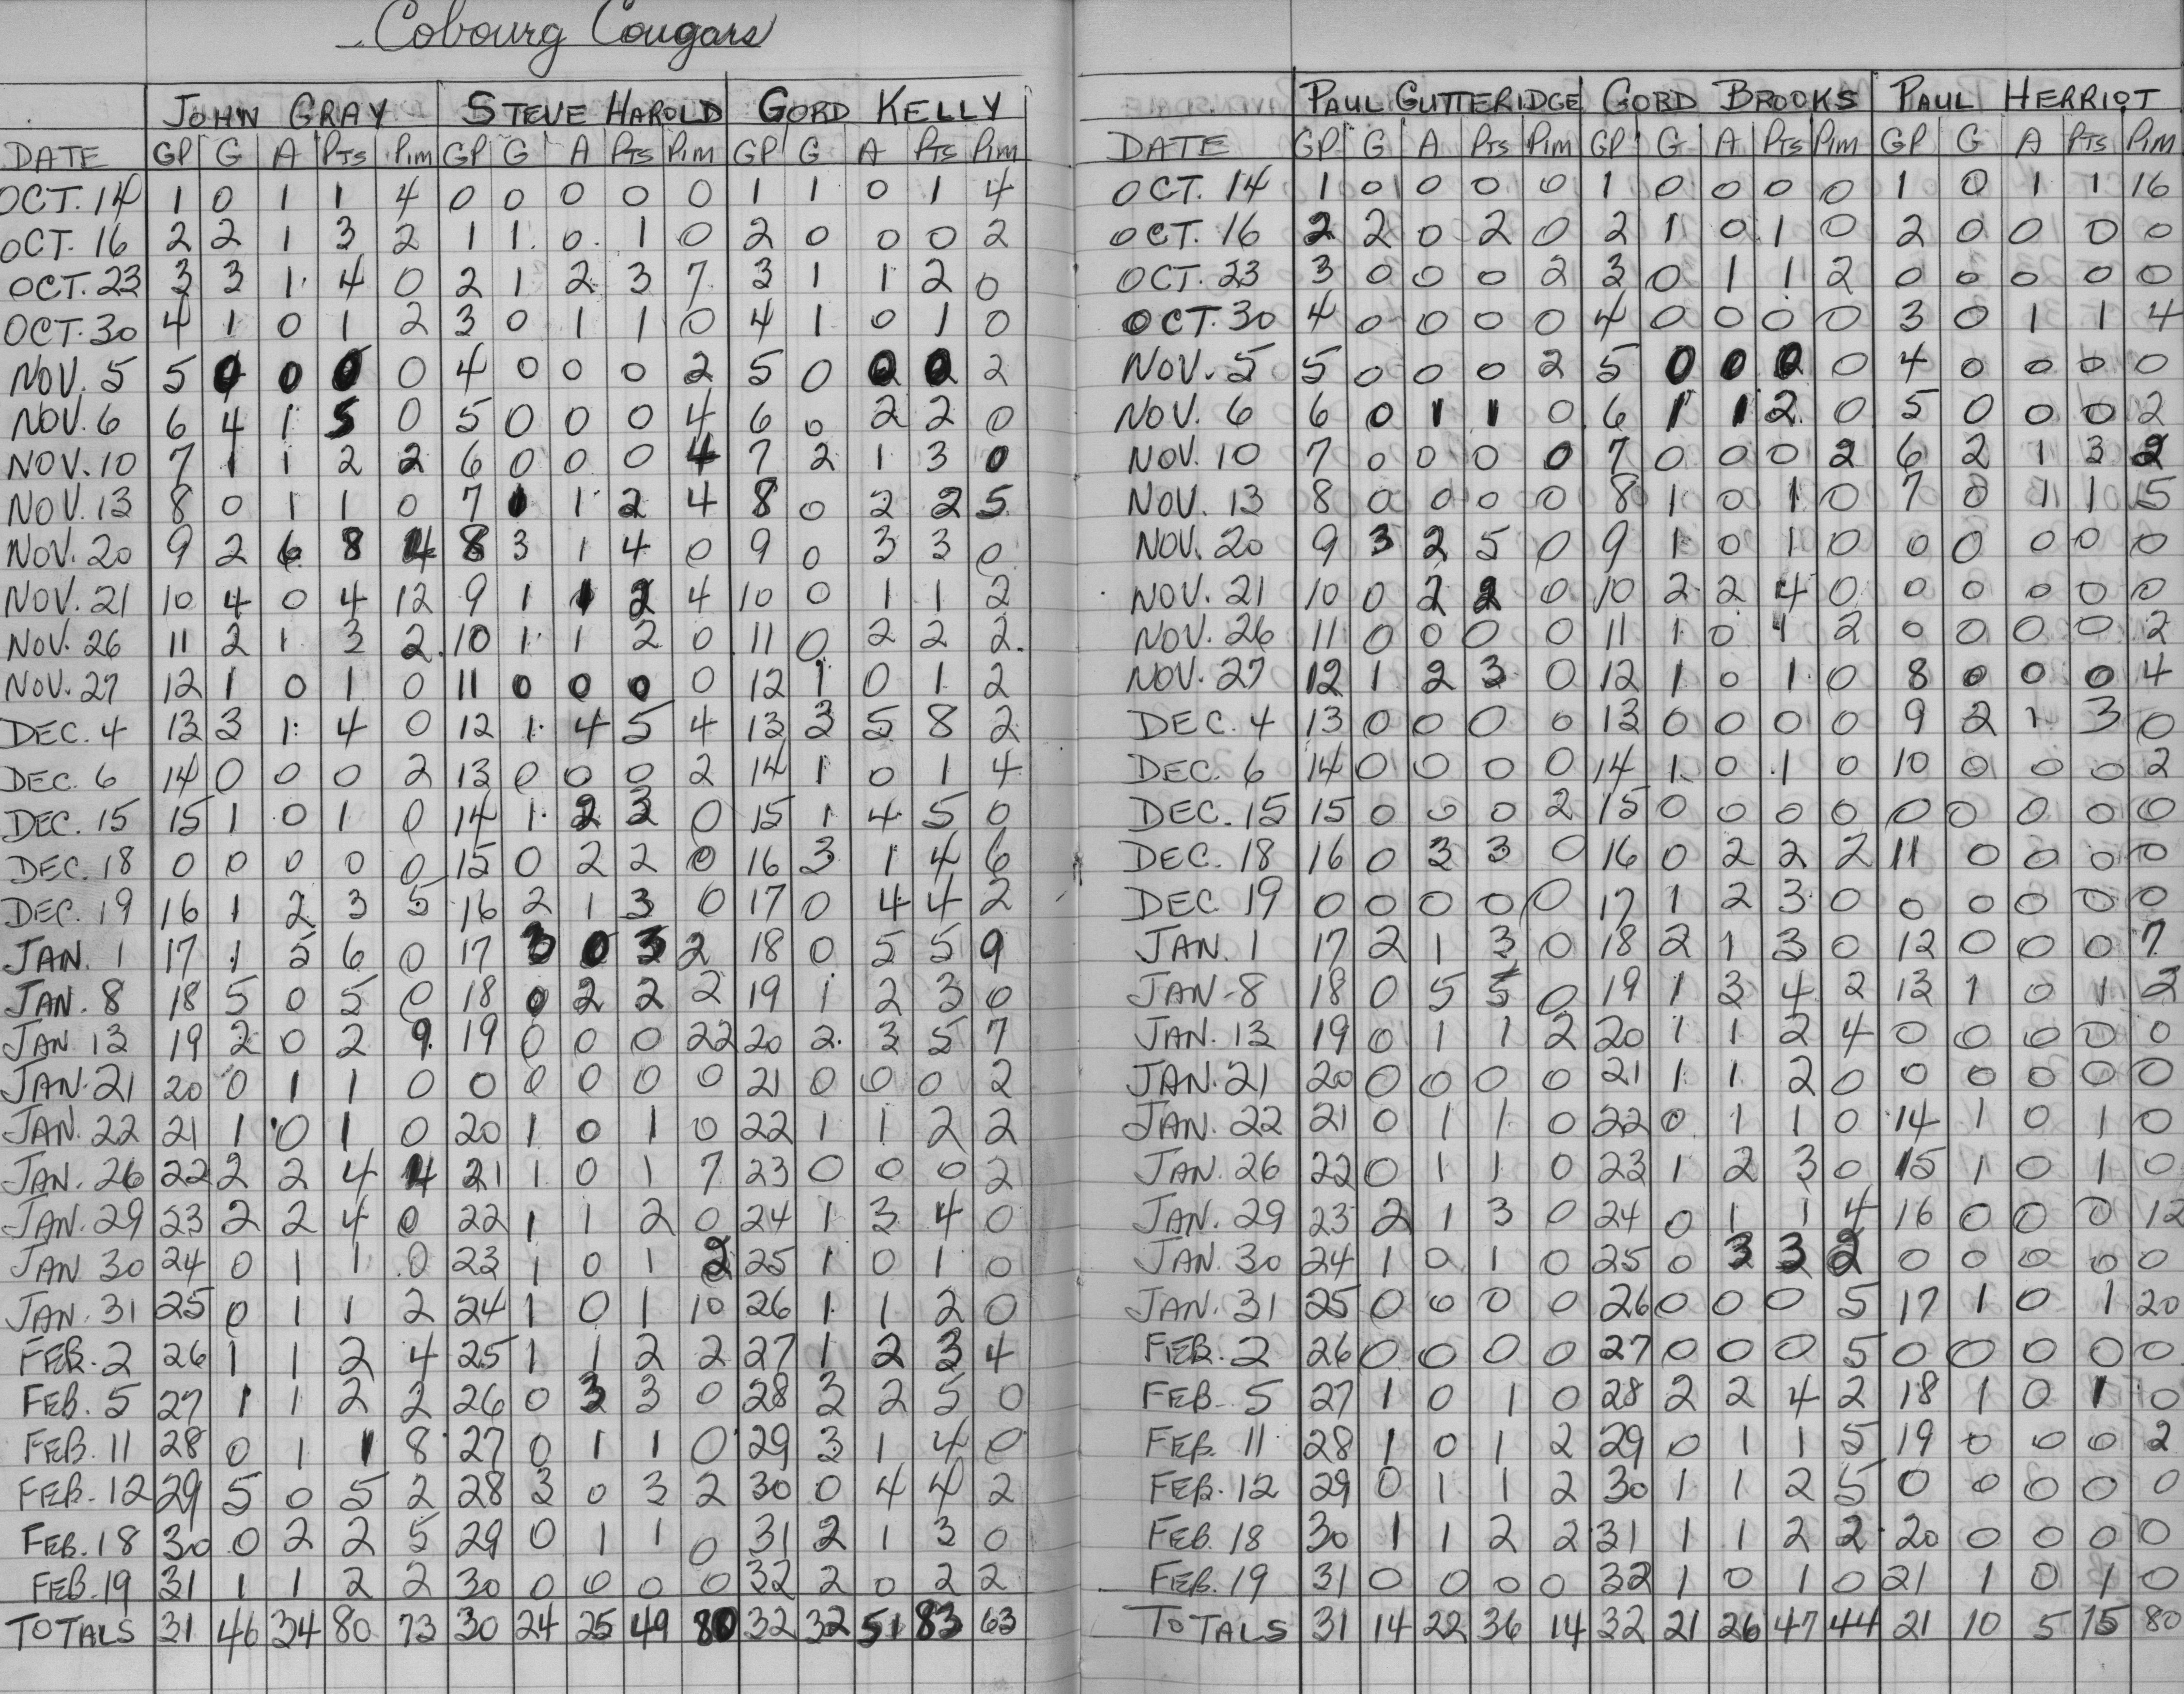 Cobourg Cougars
JOHN GRAY STEVE HAROLD GORD KELLY
DATE GP G A Pts Pim GP G A Pts Pim GP G A Pts Pim
OCT. 14 1 0 1 1 4 0 0 0 0 0 1 1 0 1 4
OCT. 16 2 2 1 3 2 1 1 0 1 0 2 0 0 0 2
OCT. 23 3 3 1 4 0 2 1 2 3 7 3 1 1 2 0
OCT. 30 4 1 0 1 2 3 0 1 1 0 4 1 0 1 0
NOV. 5 5 0 0 0 0 4 0 0 0 2 5 0 0 0 2
NOV. 6 6 4 1 5 0 5 0 0 0 4 6 0 2 2 0
NOV. 10 7 1 1 2 2 6 0 0 0 4 7 2 1 3 0
NOV. 13 8 0 1 1 0 7 1 1 2 4 8 0 2 2 5
NOV. 20 9 2 6 8 4 8 3 1 4 0 9 0 3 3 0
NOV. 21 10 4 0 4 12 9 1 1 2 4 10 0 1 1 2
NOV. 26 11 2 1 3 2 10 1 1 2 0 11 0 2 2 2
NOV. 27 12 1 0 1 0 11 0 0 0 0 12 1 0 1 2
DEC. 4 13 3 1 4 0 12 1 4 5 4 13 3 5 8 2
DEC. 6 14 0 0 0 2 13 0 0 0 2 14 1 0 1 4
DEC. 15 15 1 0 1 0 14 1 2 3 0 15 1 4 5 0
DEC. 18 0 0 0 0 0 15 0 2 2 0 16 3 1 4 6
DEC. 19 16 1 2 3 5 16 2 1 3 0 17 0 4 4 2
JAN. 1 17 1 5 6 0 17 3 0 3 2 18 0 5 5 9
JAN. 8 18 5 0 5 0 18 0 2 2 2 19 1 2 3 0
JAN 13 19 2 0 2 9 19 0 0 0 22 20 2 3 5 7
JAN. 21 20 0 1 1 0 0 0 0 0 0 21 0 0 0 2
JAN. 22 21 1 0 1 0 20 1 0 1 0 22 1 1 2 2
JAN. 26 22 2 2 4 4 21 1 0 1 7 23 0 0 0 2
JAN. 29 23 2 2 4 0 22 1 1 2 0 24 1 3 4 0
JAN 30 24 0 1 1 0 23 1 0 1 2 25 1 0 1 0
JAN. 31 25 0 1 1 2 24 1 0 1 10 26 1 1 2 0
FEB. 2 26 1 1 2 4 25 1 1 2 2 27 1 2 3 4
FEB. 5 27 1 1 2 2 26 0 3 3 0 28 3 2 5 0
FEB. 11 28 0 1 1 8 27 0 1 1 0 29 3 1 4 0
FEB. 12 29 5 0 5 2 28 3 0 3 2 30 0 4 4 2
FEB. 18 30 0 2 2 5 29 0 1 1 0 31 2 1 3 0
FEB. 19 31 1 1 2 2 30 0 0 0 0 32 2 0 2 2
TOTALS 31 46 34 80 73 30 24 25 49 80 32 32 51 83 63
PAUL GUTTERIDGE GORD BROOKS PAUL HERRIOT
DATE GP G A Pts Pim GP G A Pts Pim GP G A Pts Pim
OCT. 14 1 0 0 0 0 1 0 0 0 0 1 0 1 1 16
OCT. 16 2 2 0 2 0 2 1 0 1 0 2 0 0 0 0
OCT. 23 3 0 0 0 2 3 0 1 1 2 0 0 0 0 0
OCT. 30 4 0 0 0 0 4 0 0 0 0 3 0 1 1 4
NOV. 5 5 0 0 0 2 5 0 0 0 0 4 0 0 0 0
NOV. 6 6 0 1 1 0 6 1 1 2 0 5 0 0 0 2
NOV. 10 7 0 0 0 0 7 0 0 0 2 6 2 1 3 2
NOV. 13 8 0 0 0 0 8 1 0 1 0 7 0 1 1 5
NOV. 20 9 3 2 5 0 9 1 0 1 0 0 0 0 0 0
NOV. 21 10 0 2 2 0 10 2 2 4 0 0 0 0 0 0
NOV. 26 11 0 0 0 0 11 1 0 1 2 0 0 0 0 2
NOV. 27 12 1 2 3 0 12 1 0 1 0 8 0 0 0 4
DEC. 4 13 0 0 0 0 13 0 0 0 0 9 2 1 3 0
DEC. 6 14 0 0 0 0 14 1 0 1 0 10 0 0 0 2
DEC. 15 15 0 0 0 2 15 0 0 0 0 0 0 0 0 0
DEC. 18 16 0 3 3 0 16 0 2 2 2 11 0 0 0 0
DEC. 19 0 0 0 0 0 17 1 2 3 0 0 0 0 0 0
JAN. 1 17 2 1 3 0 18 2 1 3 0 12 0 0 0 7
JAN-8 18 0 5 5 0 19 1 3 4 2 13 1 0 1 2
JAN. 13 19 0 1 1 2 20 1 1 2 4 0 0 0 0 0
JAN. 21 20 0 0 0 0 21 1 1 2 0 0 0 0 0 0
JAN. 22 21 0 1 1 0 22 0 1 1 0 14 1 0 1 0
JAN. 26 22 0 1 1 0 23 1 2 3 0 15 1 0 1 0
JAN. 29 23 2 1 3 0 24 0 1 1 4 16 0 0 0 12
JAN. 30 24 1 0 1 0 25 0 3 3 2 0 0 0 0 0
JAN. 31 25 0 0 0 0 26 0 0 0 5 17 1 0 1 20
FEB. 2 26 0 0 0 0 27 0 0 0 5 0 0 0 0 0
FEB. 5 27 1 0 1 0 28 2 2 4 2 18 1 0 1 0
FEB. 11 28 1 0 1 2 29 0 1 1 5 19 0 0 0 2
FEB. 12 29 0 1 1 2 30 1 1 2 5 0 0 0 0 0
FEB. 18 30 1 1 2 2 31 1 1 2 2 20 0 0 0 0
FEB. 19 31 0 0 0 0 32 1 0 1 0 21 1 0 1 0
TOTALS 31 14 22 36 14 32 21 26 47 44 21 10 5 15 80